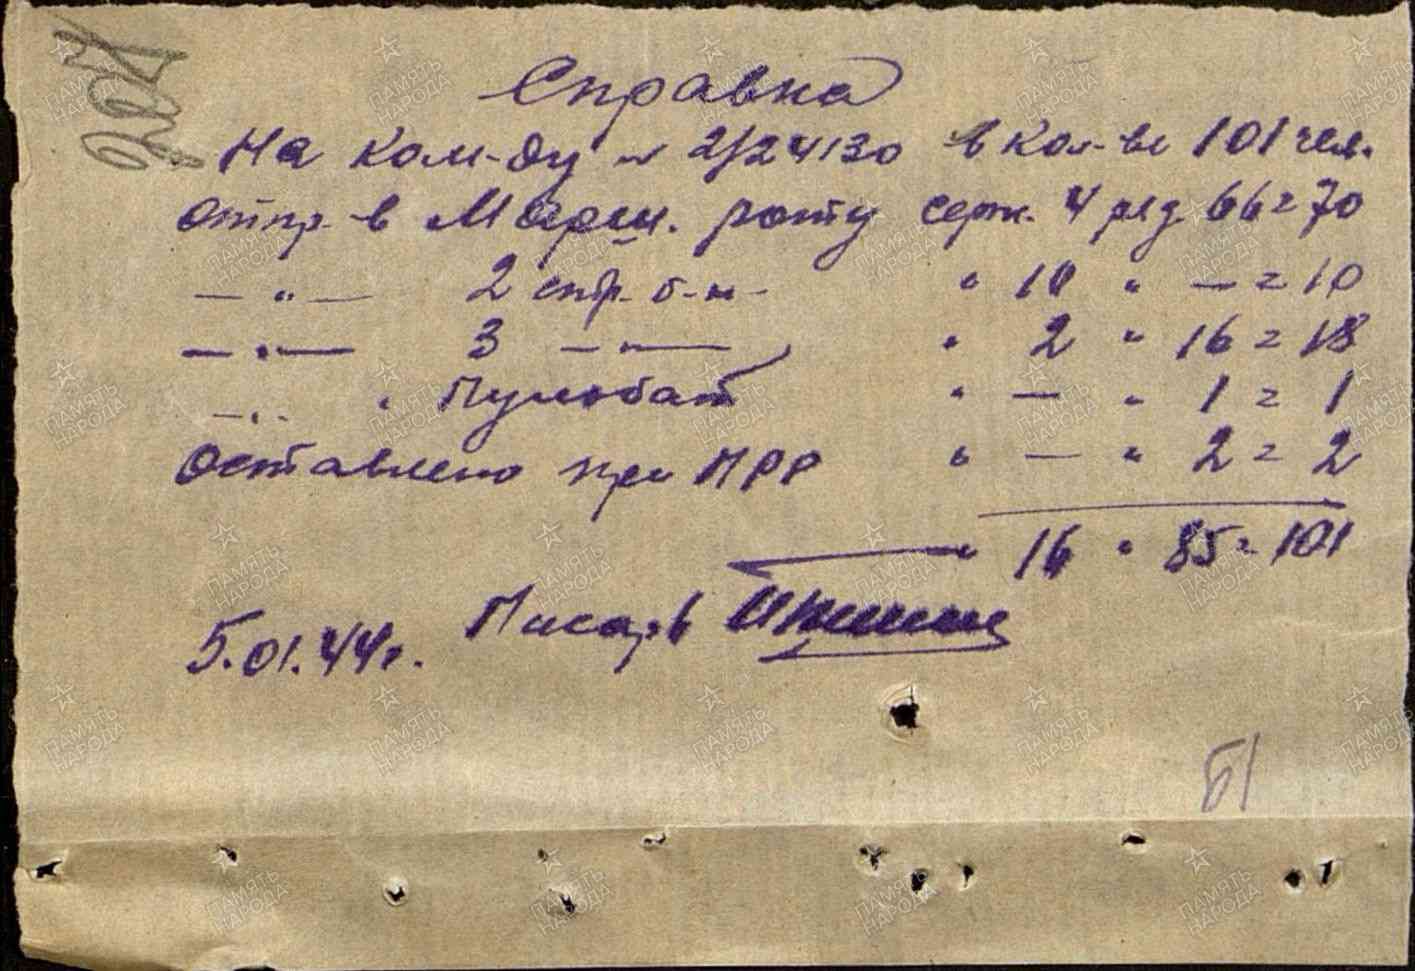 Справка
На ком-ду № 2/24130 в кол-ве 101 чел.
Отпр. в Марш. роту серж. 4 ряд 66 = 70
— " — 2 стр. б-н - " 10 " — = 10
— " — 3 — " — " 2 " 16 = 18
— " - " Пульбат " — " 1 = 1
Оставлено при ПРР " — " 2 = 2
" 16 " 85 = 101
5.01.44г. Писарь